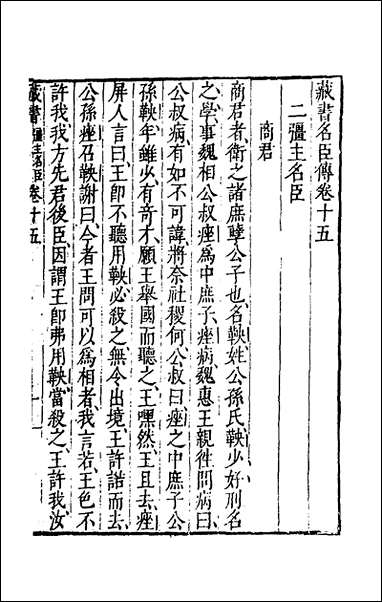 藏書名臣傳卷十五
二彊主名臣
商君
商君者衛之諸庶孽公子也、名鞅姓公孫氏鞅少好刑名
之學、事魏相公叔痤爲中庶子、痤病、魏惠王親徃問病曰、
公叔病、有如不可諱、將奈社稷何、公叔曰、痤之中庶子公
孫鞅、年雖少、有奇才、願王舉國而聽之、王嘿然、王且去、痤
屏人言曰、王卽不聽用鞅、必殺之、無令出境、王許諾而去、
公孫痤召鞅謝曰、今者王問可以爲相者、我言若、王色不
許我、我方先君後臣、因謂王卽弗用鞅、當殺之、王許我、汝
藏書 彊主名臣 卷十五 一